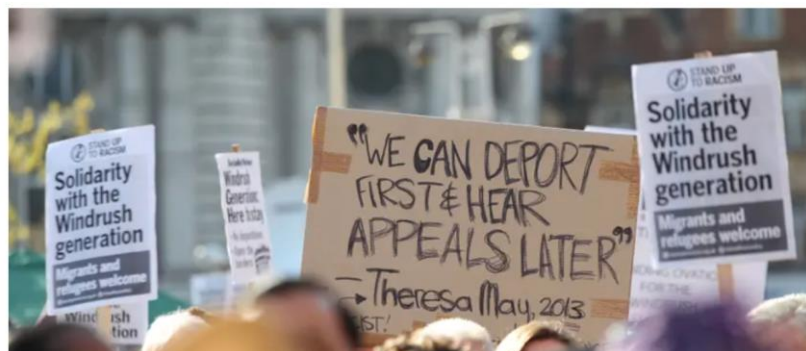 STAND UP
TO RACISM
Solidarity
with the
Windrush
generation
Migrants and
refugees welcome
Windrush
Generation:
Here to stay
"WE CAN DEPORT
FIRST & HEAR
APPEALS LATER"
Theresa May, 2013
STAND UP
TO RACISM
Solidarity
with the
Windrush
generation
Migrants and
refugees welcome
FOR THE